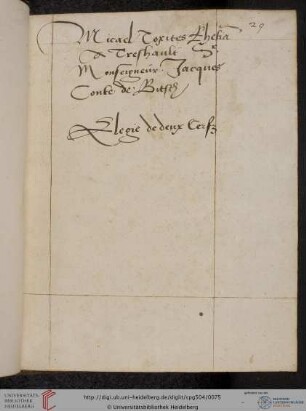 29
Micael Toxites Rhetia
A Treshault Sr
Monseigneur Jacques
Conte de Bitsch
Elegie de deux Cerfz
UNIVERSITÄTS-
BIBLIOTHEK
HEIDELBERG
http://digi.ub.uni-heidelberg.de/diglit/cpg504/0075
© Universitätsbibliothek Heidelberg